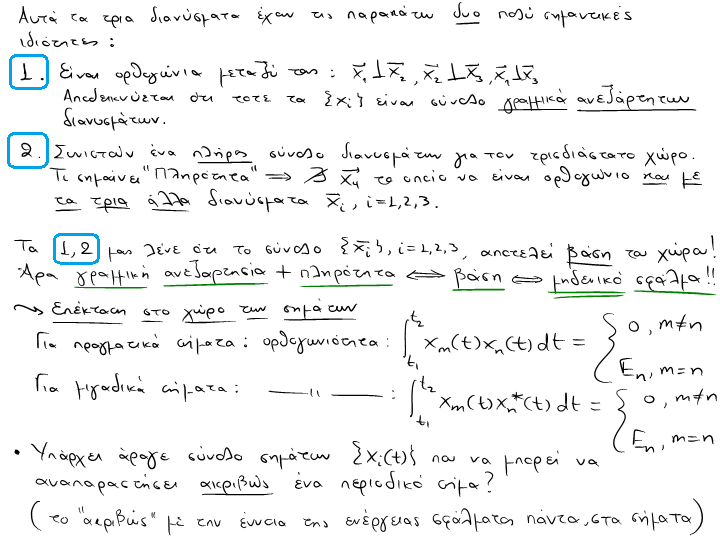 Αυτά τα τρια διανύσματα έχουν τις παρακάτω δυο πολύ σημαντικές
ιδιότητες :
1. Είναι ορθογώνια μεταξύ τους : x⃗₁⊥x⃗₂, x⃗₂⊥x⃗₃, x⃗₁⊥x⃗₃
Αποδεικνύεται ότι τοτε τα {x⃗ᵢ} είναι σύνολο γραμμικά ανεξάρτητων
διανυσμάτων.
2. Συνιστούν ένα πλήρες σύνολο διανυσμάτων για τον τρισδιάστατο χώρο.
Τι σημαίνει "Πληρότητα" ⟹ ∄ x⃗₄ το οποίο να είναι ορθογώνιο και με
τα τρια άλλα διανύσματα x⃗ᵢ, i=1,2,3.
Τα 1,2 μας λένε ότι το σύνολο {x⃗ᵢ}, i=1,2,3, αποτελεί βάση του χώρου!
Άρα γραμμική ανεξαρτησία + πληρότητα ⟺ βάση ⟺ μηδενικό σφάλμα!!
⇝ Επέκταση στο χώρο των σημάτων
Για πραγματικά σήματα : ορθογωνιότητα : ∫_{t₁}^{t₂} xₘ(t)xₙ(t) dt = { 0, m≠n
Eₙ, m=n
Για μιγαδικά σήματα : —— " —— : ∫_{t₁}^{t₂} xₘ(t)xₙ*(t) dt = { 0, m≠n
Eₙ, m=n
• Υπάρχει άραγε σύνολο σημάτων {xᵢ(t)} που να μπορεί να
αναπαραστήσει ακριβώς ένα περιοδικό σήμα?
(το "ακριβώς" με την έννοια της ενέργειας σφάλματος πάντα, στα σήματα)